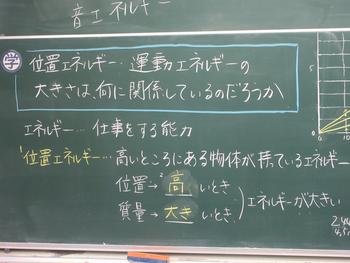 音エネルギー
学
位置エネルギー・運動エネルギーの
大きさは、何に関係しているのだろうか
エネルギー…仕事をする能力
位置エネルギー…高いところにある物体が持っているエネルギー
位置→高いとき
質量→大きいとき
エネルギーが大きい
5
0
10